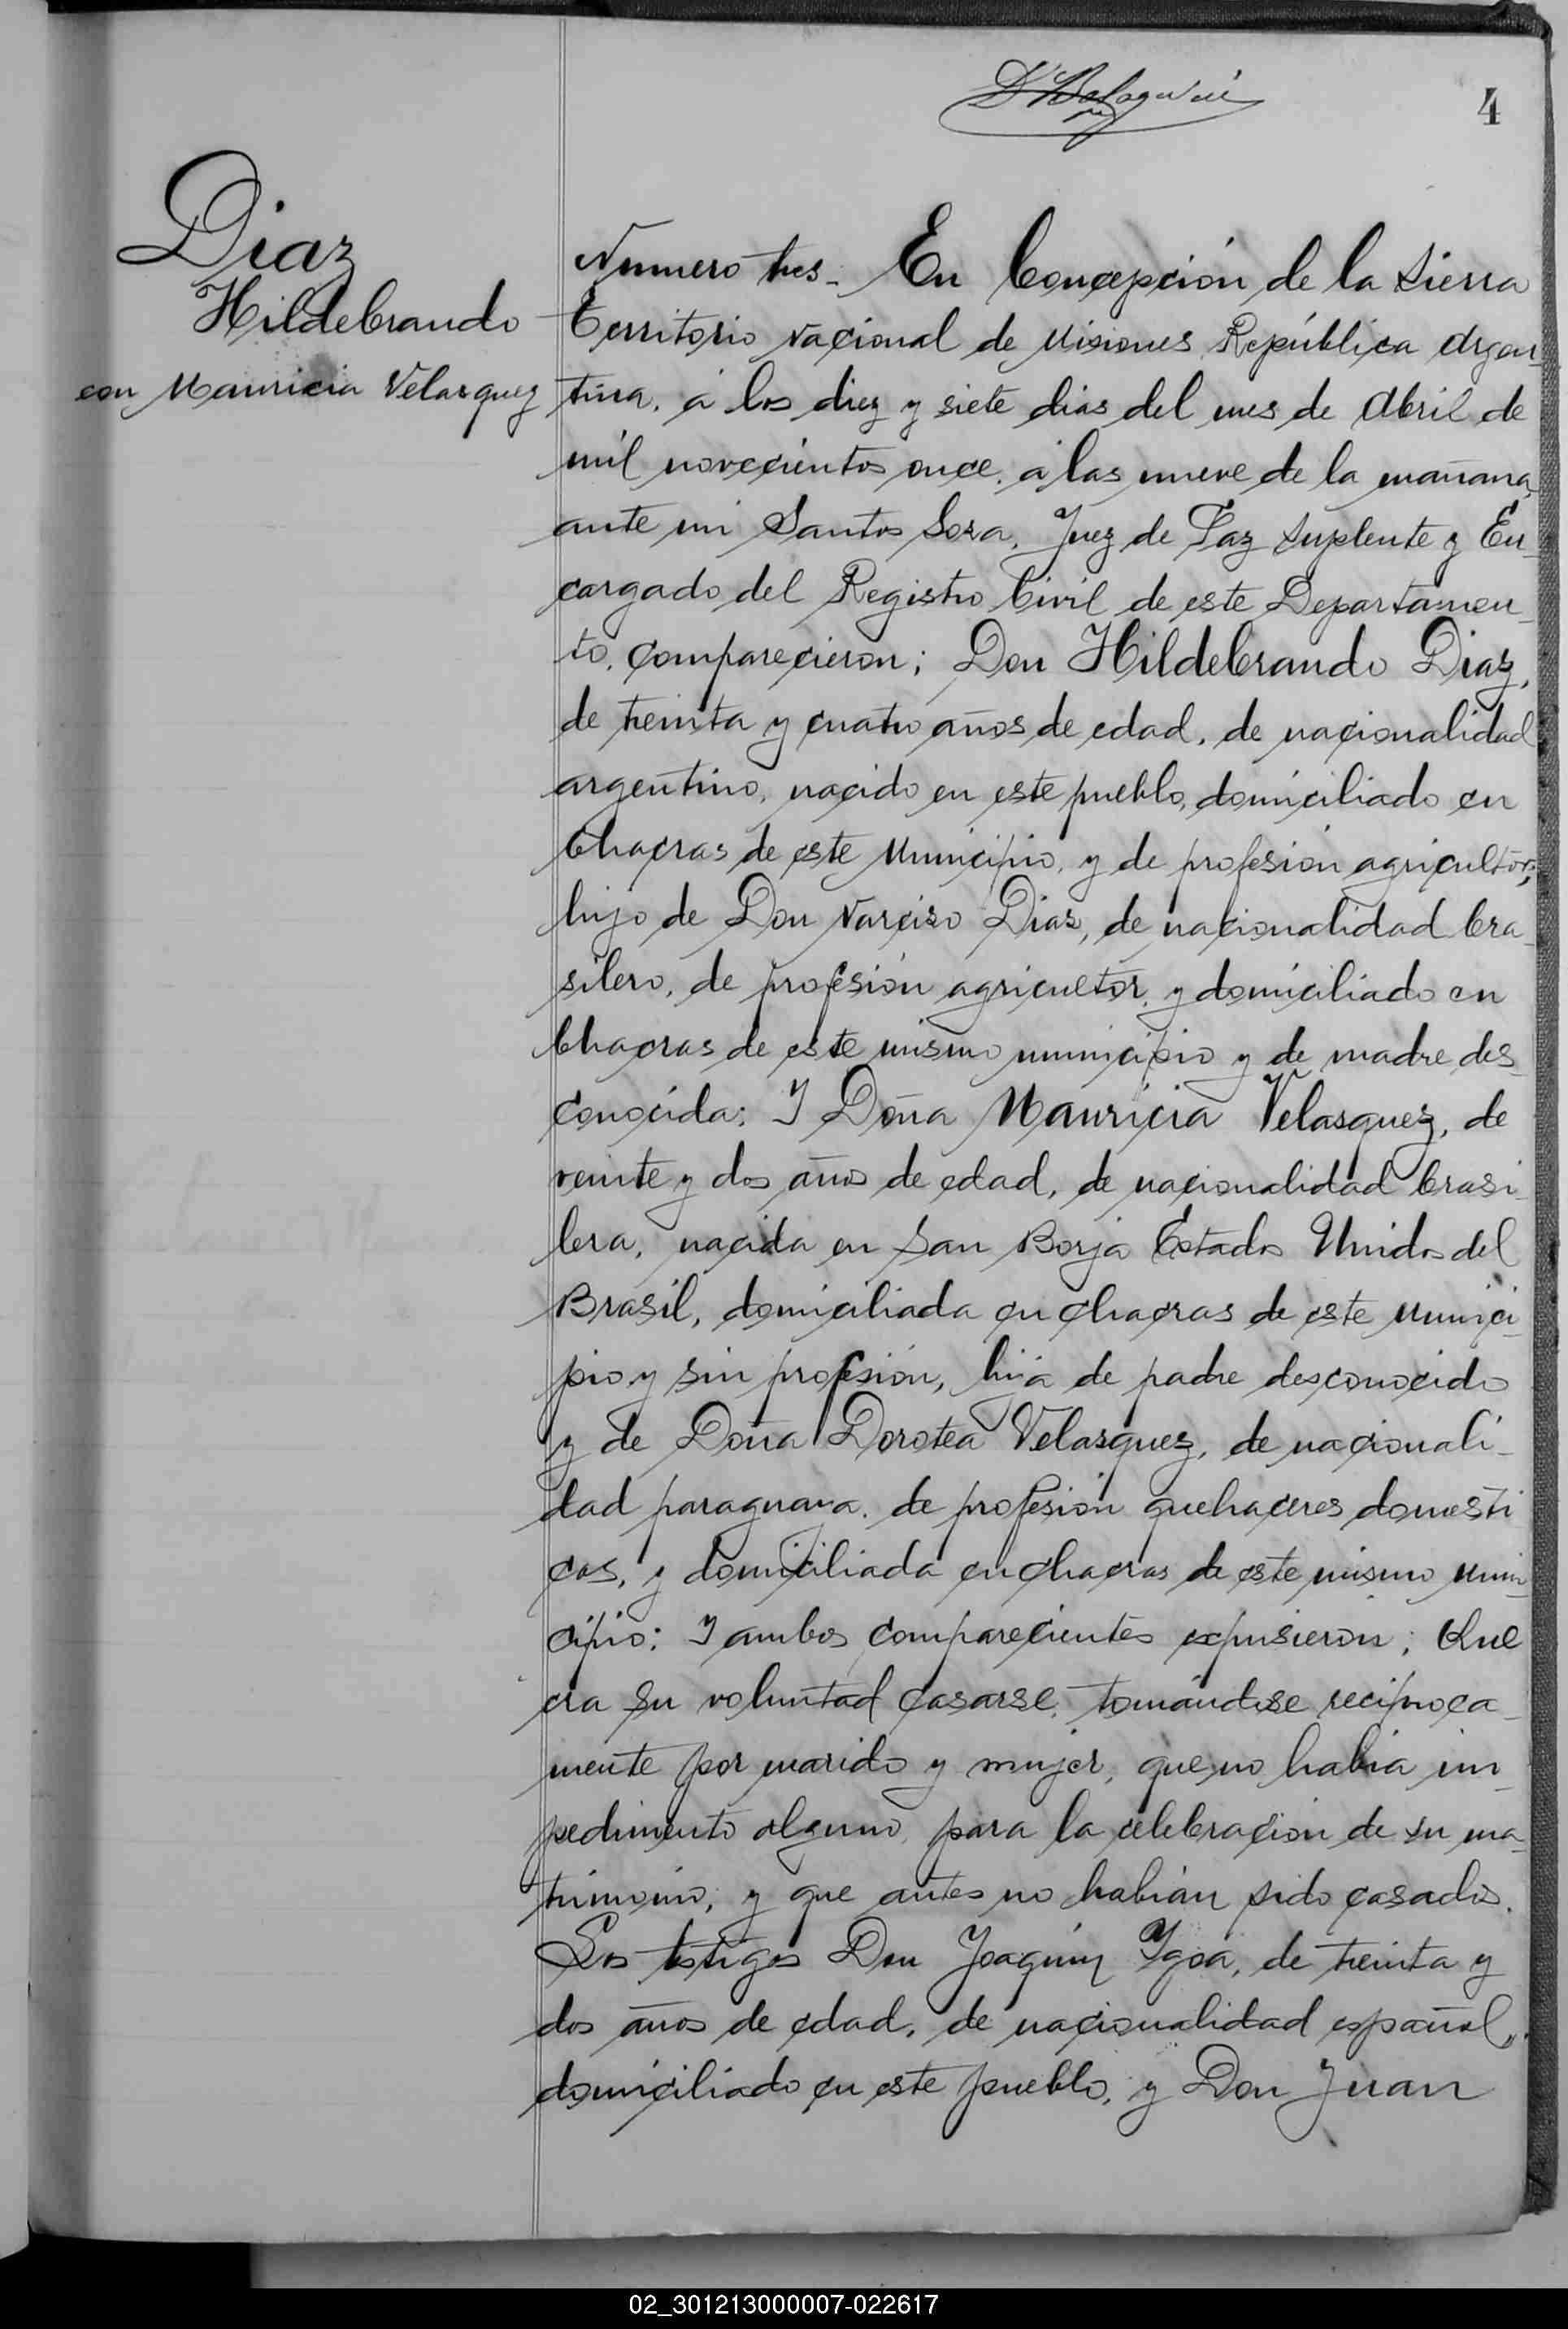 4
Diaz
Hildebrando
con Mauricia Velasquez
Numero tres_ En Concepción de la Sierra
Territorio Nacional de Misiones República Argen_
tina, á los diez y siete dias del mes de Abril de
mil novecientos once, á las nueve de la mañana,
ante mi Santos Sosa, Juez de Paz Suplente y En_
cargado del Registro Civil de este Departamen_
to, comparecieron; Don Hildebrando Diaz,
de treinta y cuatro años de edad, de nacionalidad
argentino, nacido en este pueblo, domiciliado en
Chacras de este Municipio, y de profesión agricultor,
hijo de Don Narciso Dias, de nacionalidad bra_
silero, de profesión agricultor, y domiciliado en
Chacras de este mismo municipio y de madre des_
conocida: Y Doña Mauricia Velasquez, de
veinte y dos años de edad, de nacionalidad brasi_
lera, nacida en San Borja Estados Unidos del
Brasil, domiciliada en chacras de este Munici_
pio y sin profesión, hija de padre desconocido
y de Doña Dorotea Velasquez, de nacionali_
dad paraguaya, de profesión quehaceres domesti
cos, y domiciliada en chacras de este mismo Muni
cipio: Y ambos comparecientes expusieron; Que
era su voluntad casarse, tomándose reciproca_
mente por marido y mujer, que no habia im_
pedimento alguno para la celebración de su ma_
trimonio, y que antes no habian sido casados.
Los testigos Don Joaquin Ygoa, de treinta y
dos años de edad, de nacionalidad español,
domiciliado en este pueblo, y Don Juan
02_301213000007-022617